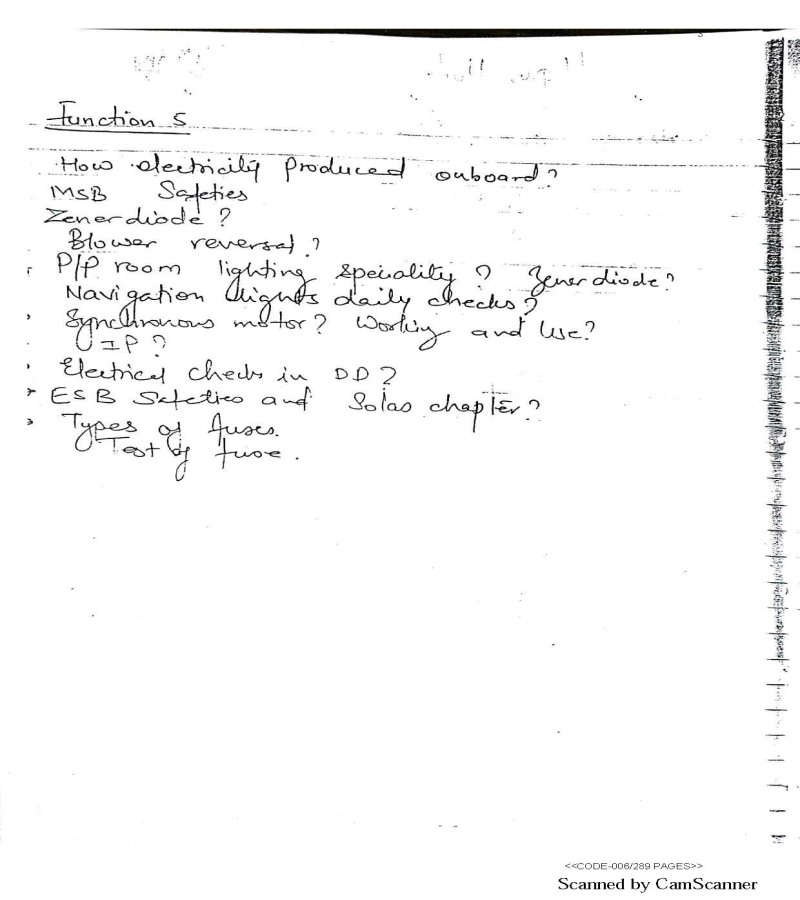 Function 5
How electricity produced onboard?
MSB Safeties
Zener diode?
Blower reversal?
P/P room lighting speciality? Zener diode?
Navigation lights daily checks?
Synchronous motor? Working and Use?
IP?
Electrical checks in DD?
ESB Safeties and Solas chapter?
Types of fuses.
Test of fuse.
<<CODE-006/289 PAGES>>
Scanned by CamScanner